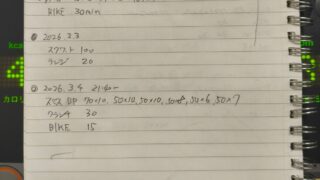 BIKE 30min
2026.3.3
スクワット 100
20
2026.3.4 21:40~
スミス BP 70×10, 50×10, 50×10, 50×8, 50×6, 50×7
クランチ 30
BIKE 15
kc
カロリ